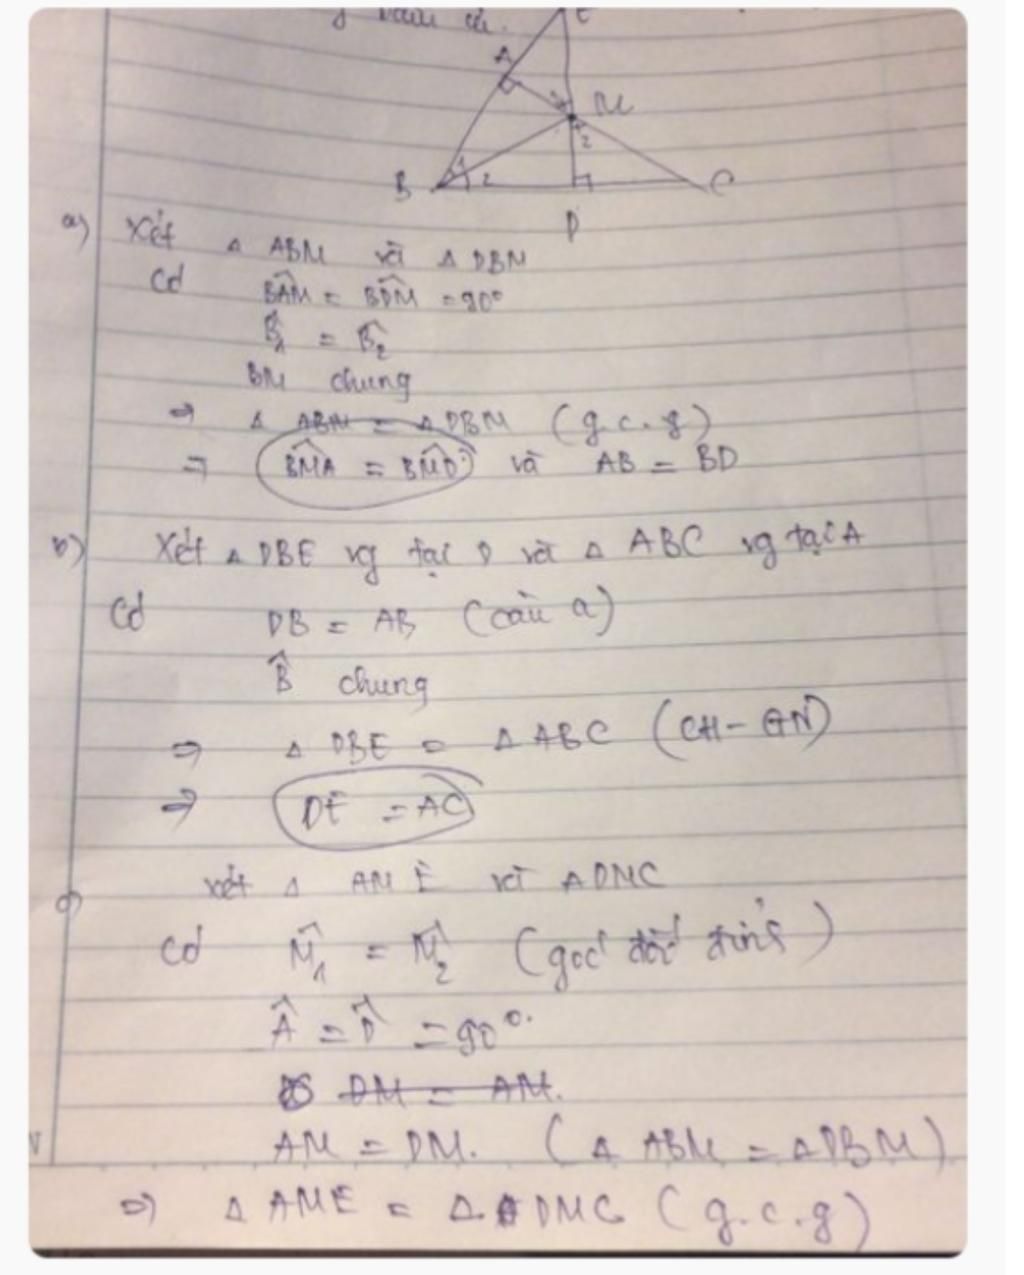 A
M
B
1
2
2
C
D
a) Xét Δ ABM và Δ DBM
Có BÂM = BD̂M = 90°
B̂₁ = B̂₂
BM chung
⇒ Δ ABM = Δ DBM (g.c.g)
⇒ BM̂A = BM̂D và AB = BD
b) Xét Δ DBE vg tại D và Δ ABC vg tại A
Có DB = AB (câu a)
B̂ chung
⇒ Δ DBE = Δ ABC (CH-GN)
⇒ DE = AC
c) xét Δ AME và Δ DMC
Có M̂₁ = M̂₂ (góc đối đỉnh)
Â = D̂ = 90°.
DM = AM.
AM = DM. (Δ ABM = Δ DBM)
⇒ Δ AME = Δ DMC (g.c.g)